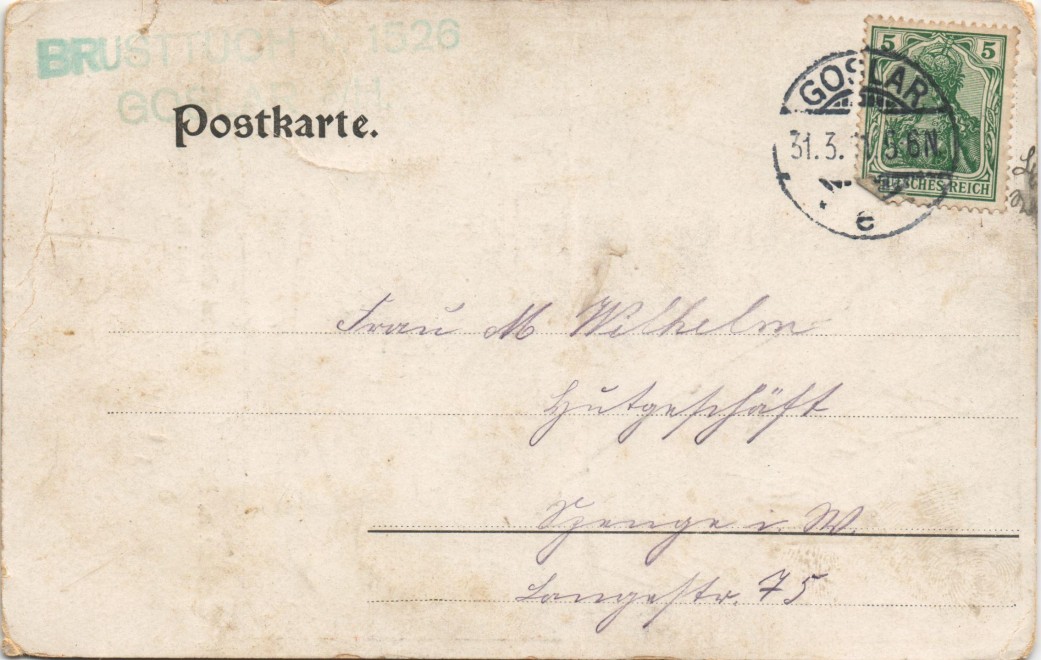 BRUSTTUCH v. 1526
GOSLAR a/H.
Postkarte.
5 5
GOSLAR
31.3. 5-6N.
DEUTSCHES REICH
e
Frau M Wilhelm
Hutgeschäft
Spenge i. W.
Langestr. 75